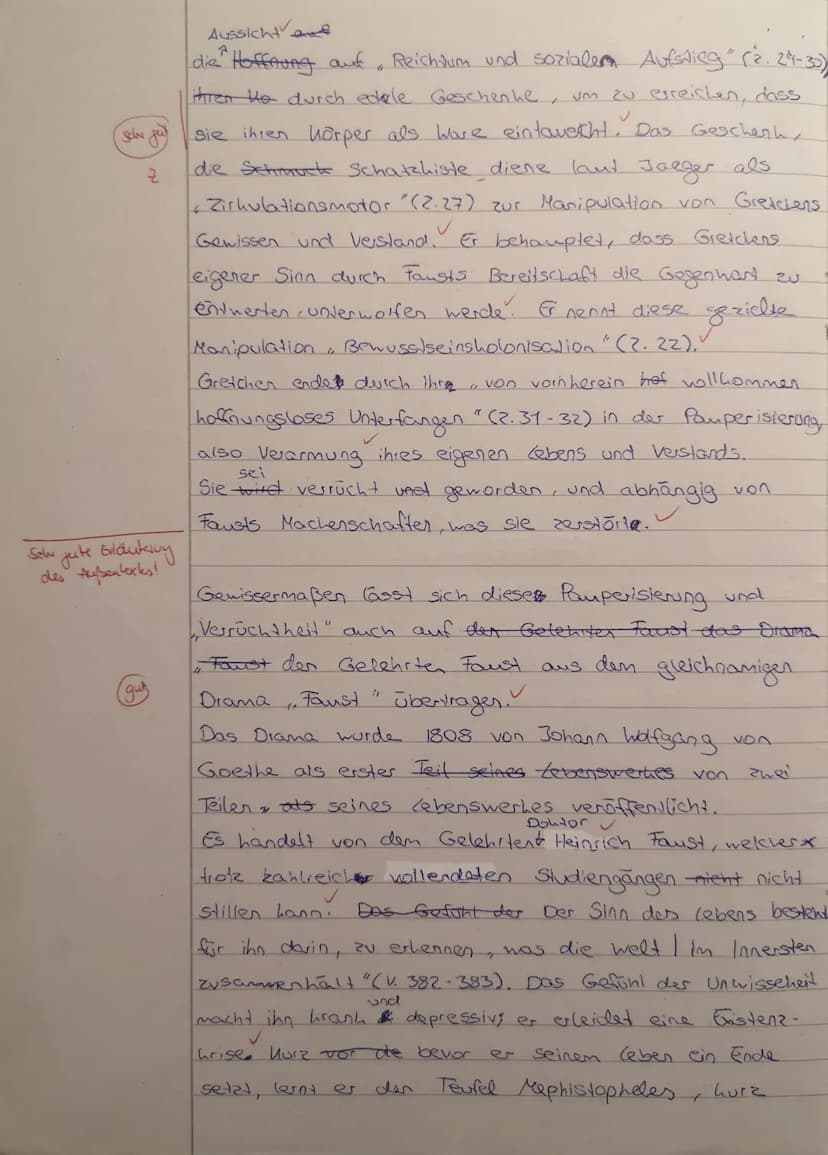 Aussicht auf
die Hoffnung auf „Reichtum und sozialem Aufstieg" (Z. 29-30)
ihren Ko durch edele Geschenke, um zu erreichen, dass
sehr gut
sie ihren Körper als Ware eintauscht. Das Geschenk,
Z
die Schmuck Schatzkiste diene laut Jaeger als
„Zirkulationsmotor" (Z.27) zur Manipulation von Gretchens
Gewissen und Verstand. Er behauptet, dass Gretchens
eigener Sinn durch Fausts Bereitschaft die Gegenwart zu
entwerten unterworfen werde. Er nennt diese gezielte
Manipulation „Bewusstseinskolonisation" (Z. 22).
Gretchen endet durch ihr „von vornherein hof vollkommen
hoffnungsloses Unterfangen" (Z.31-32) in der Pauperisierung,
also Verarmung ihres eigenen Lebens und Verstands.
sei
Sie wird verrückt und geworden, und abhängig von
Fausts Machenschaften, was sie zerstöre.
Sehr gute Erläuterung
des Außentextes!
Gewissermaßen lässt sich diese Pauperisierung und
„Verrücktheit" auch auf den Gelehrten Faust das Drama
„Faust den Gelehrten Faust aus dem gleichnamigen
gut
Drama „Faust" übertragen.
Das Drama wurde 1808 von Johann Wolfgang von
Goethe als erster Teil seines Lebenswerkes von zwei
Teilen als seines Lebenswerkes veröffentlicht.
Doktor
Es handelt von dem Gelehrten Heinrich Faust, welcher*
trotz zahlreich vollendeten Studiengängen nicht nicht
stillen kann. Das Gefühl der Der Sinn des Lebens besteht
für ihn darin, zu erkennen, was die Welt / Im Innersten
zusammenhält" (V. 382-383). Das Gefühl der Unwissheit
und
macht ihn krank depressiv; er erleidet eine Existenz-
krise. Kurz vor de bevor er seinem Leben ein Ende
setzt, lernt er den Teufel Mephistopheles, kurz